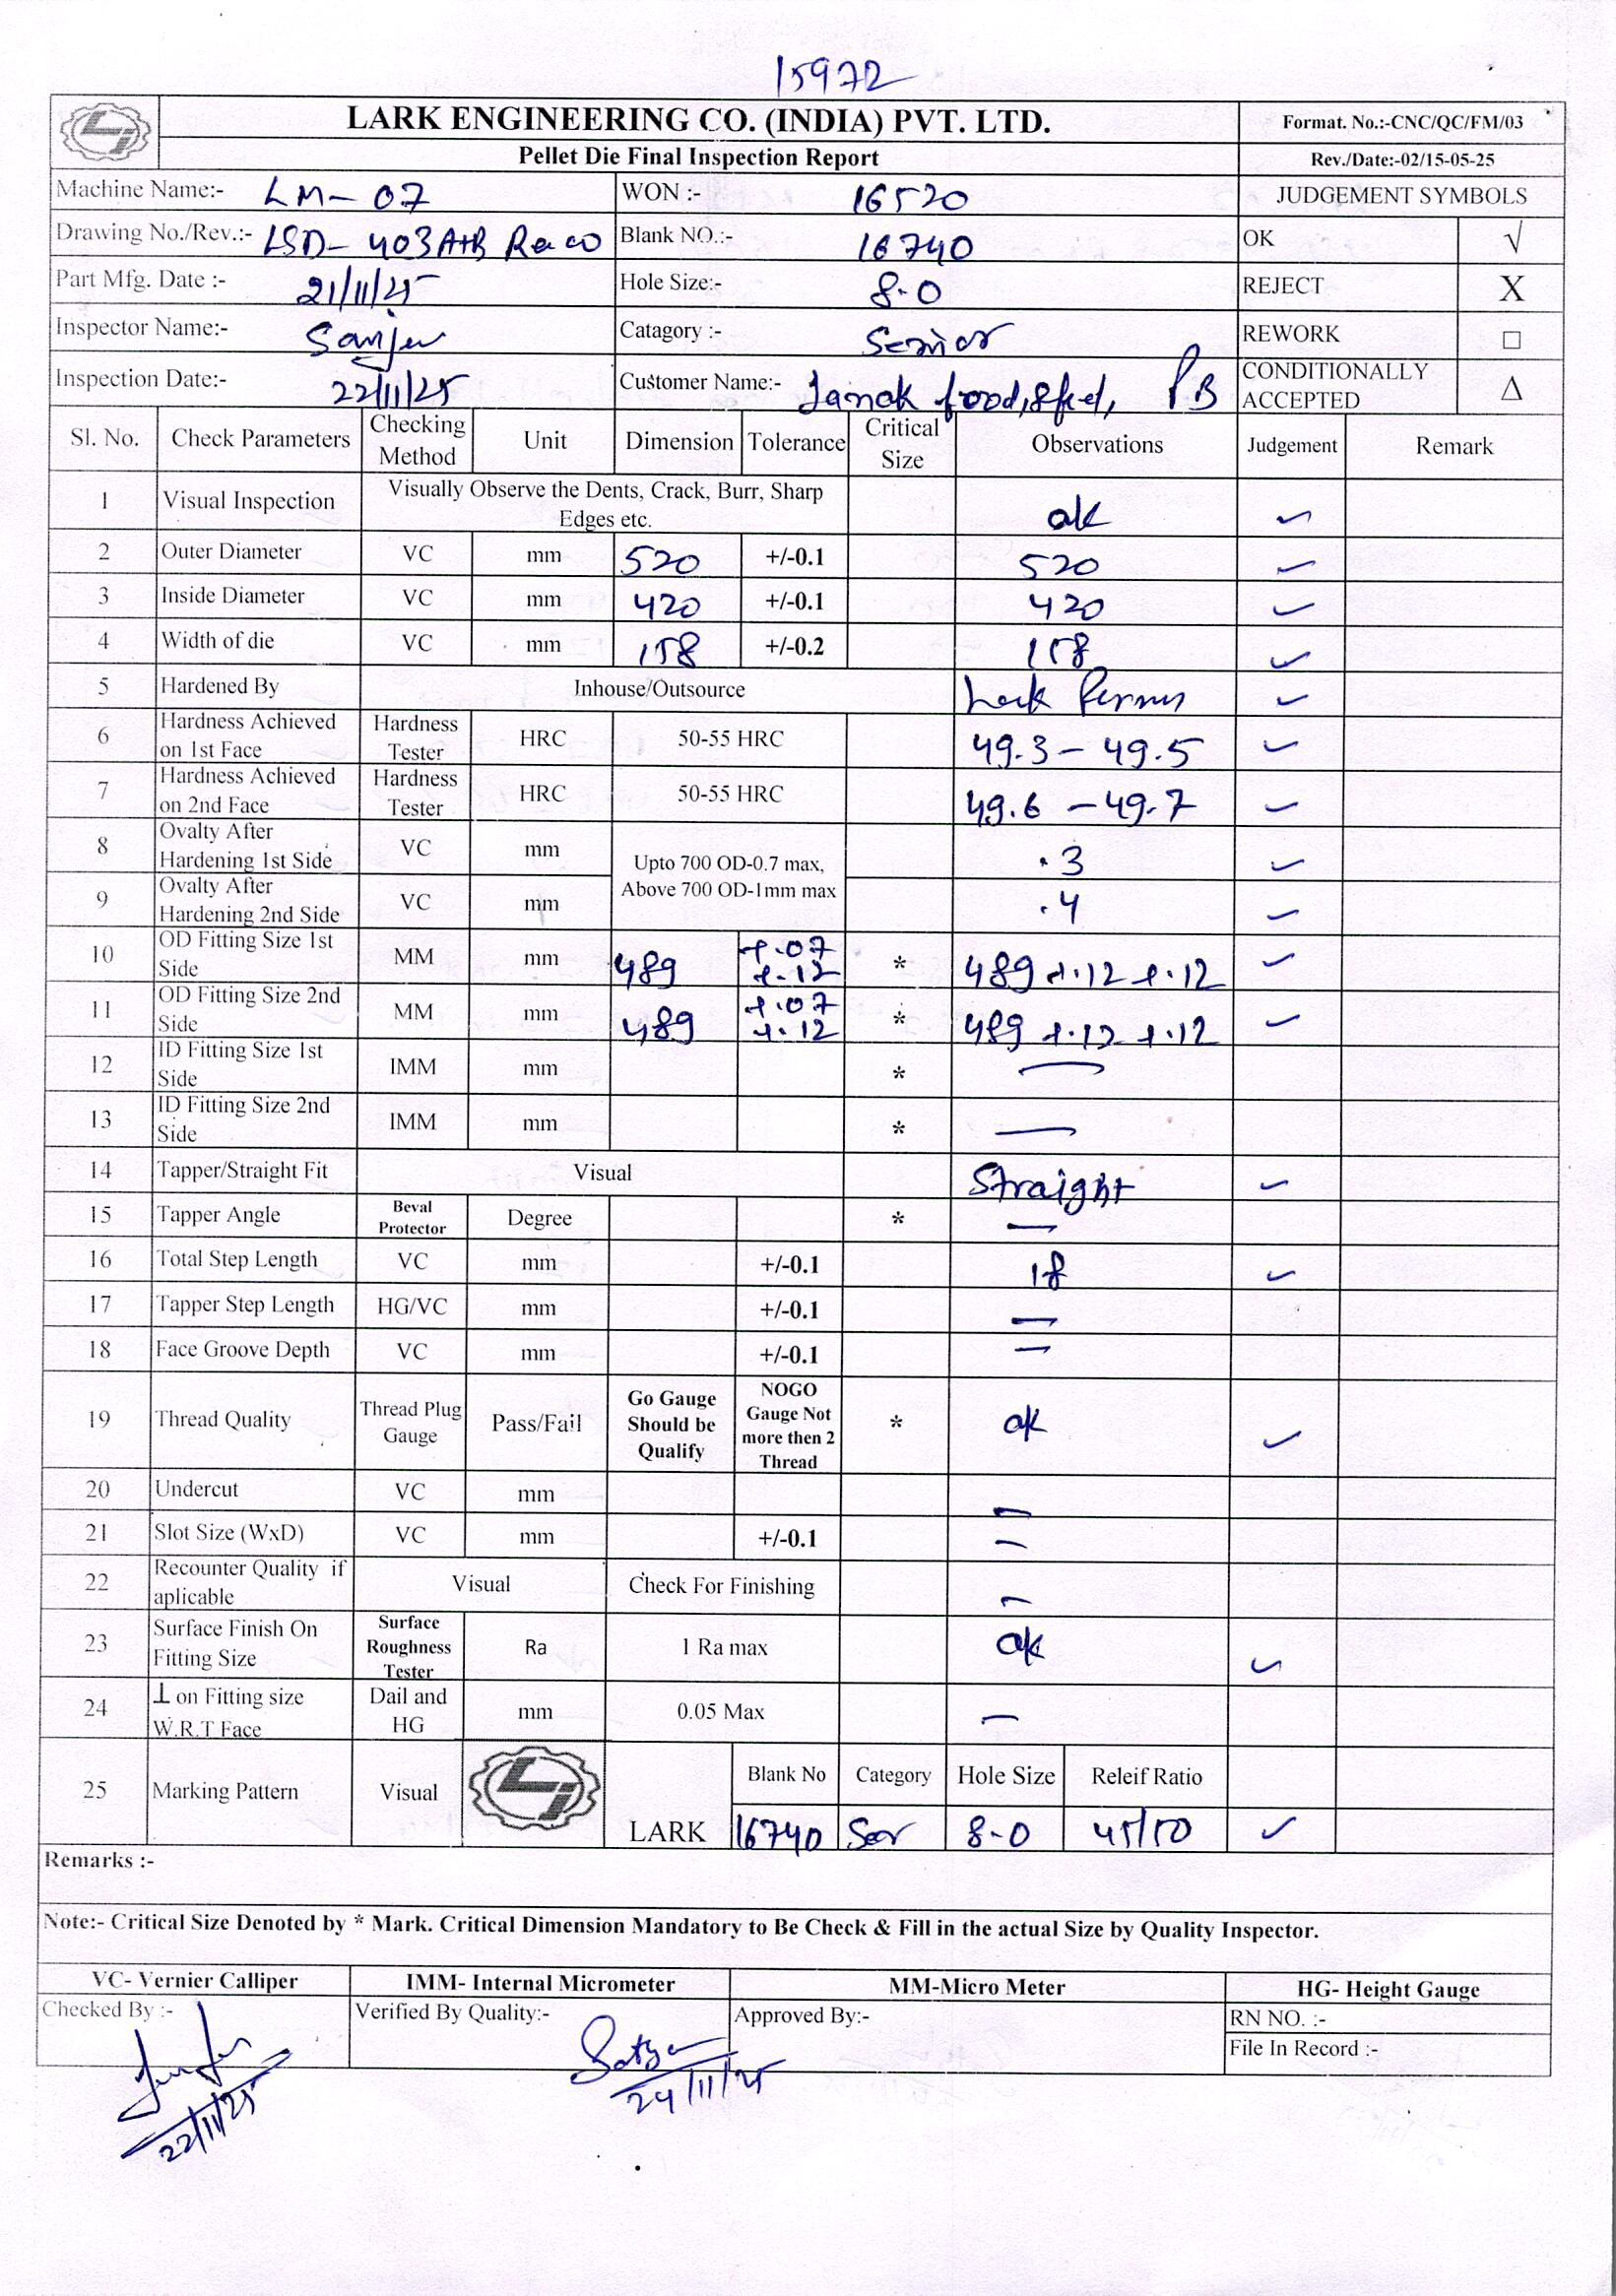 15972
LARK ENGINEERING CO. (INDIA) PVT. LTD.
Format. No.:-CNC/QC/FM/03
Pellet Die Final Inspection Report
Rev./Date:-02/15-05-25
Machine Name:- LM-07 WON :- 16520 JUDGEMENT SYMBOLS
Drawing No./Rev.:- LSD-403A+B Rev 00 Blank NO.:- 16740 OK √
Part Mfg. Date :- 21/11/25 Hole Size:- 8.0 REJECT X
Inspector Name:- Sanjeev Catagory :- Senior REWORK □
Inspection Date:- 22/11/25 Customer Name:- Janak food, & feed, PB CONDITIONALLY ACCEPTED Δ
Sl. No. Check Parameters Checking Method Unit Dimension Tolerance Critical Size Observations Judgement Remark
1 Visual Inspection Visually Observe the Dents, Crack, Burr, Sharp Edges etc. ok ✓
2 Outer Diameter VC mm 520 +/-0.1 520 ✓
3 Inside Diameter VC mm 420 +/-0.1 420 ✓
4 Width of die VC mm 158 +/-0.2 158 ✓
5 Hardened By Inhouse/Outsource ✓
6 Hardness Achieved on 1st Face Hardness Tester HRC 50-55 HRC 49.3 – 49.5 ✓
7 Hardness Achieved on 2nd Face Hardness Tester HRC 50-55 HRC 49.6 – 49.7 ✓
8 Ovalty After Hardening 1st Side VC mm Upto 700 OD-0.7 max, Above 700 OD-1mm max .3 ✓
9 Ovalty After Hardening 2nd Side VC mm .4 ✓
10 OD Fitting Size 1st Side MM mm 489 +.07 +.12 * 489 +.12 +.12 ✓
11 OD Fitting Size 2nd Side MM mm 489 +.07 +.12 * 489 +.12 +.12 ✓
12 ID Fitting Size 1st Side IMM mm * —
13 ID Fitting Size 2nd Side IMM mm * —
14 Tapper/Straight Fit Visual Straight ✓
15 Tapper Angle Beval Protector Degree * —
16 Total Step Length VC mm +/-0.1 18 ✓
17 Tapper Step Length HG/VC mm +/-0.1 —
18 Face Groove Depth VC mm +/-0.1 —
19 Thread Quality Thread Plug Gauge Pass/Fail Go Gauge Should be Qualify NOGO Gauge Not more then 2 Thread * ok ✓
20 Undercut VC mm —
21 Slot Size (WxD) VC mm +/-0.1 —
22 Recounter Quality if aplicable Visual Check For Finishing —
23 Surface Finish On Fitting Size Surface Roughness Tester Ra 1 Ra max ok ✓
24 ⊥ on Fitting size W.R.T Face Dail and HG mm 0.05 Max —
25 Marking Pattern Visual LARK Blank No Category Hole Size Releif Ratio
16740 Ser 8.0 45/50 ✓
Remarks :-
Note:- Critical Size Denoted by * Mark. Critical Dimension Mandatory to Be Check & Fill in the actual Size by Quality Inspector.
VC- Vernier Calliper IMM- Internal Micrometer MM-Micro Meter HG- Height Gauge
Checked By :- Verified By Quality:- Approved By:- RN NO. :-
File In Record :-
Satya
22/11/25 24/11/25